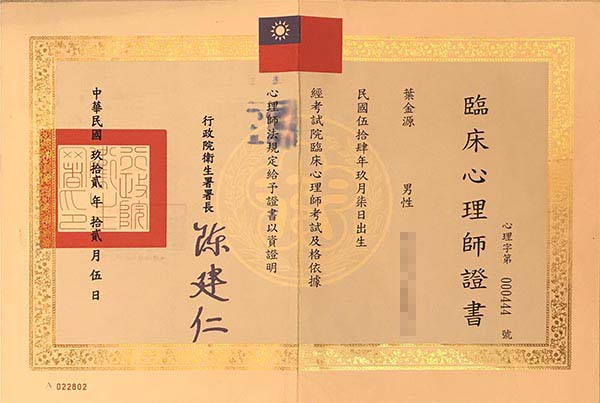 臨床心理師證書
心理字第 000444 號
葉金源 男性
民國伍拾肆年玖月柒日出生
經考試院臨床心理師考試及格依據
心理師法規定給予證書以資證明
行政院衛生署署長 陳建仁
中華民國 玖拾貳 年 拾貳 月 伍 日
A 022802